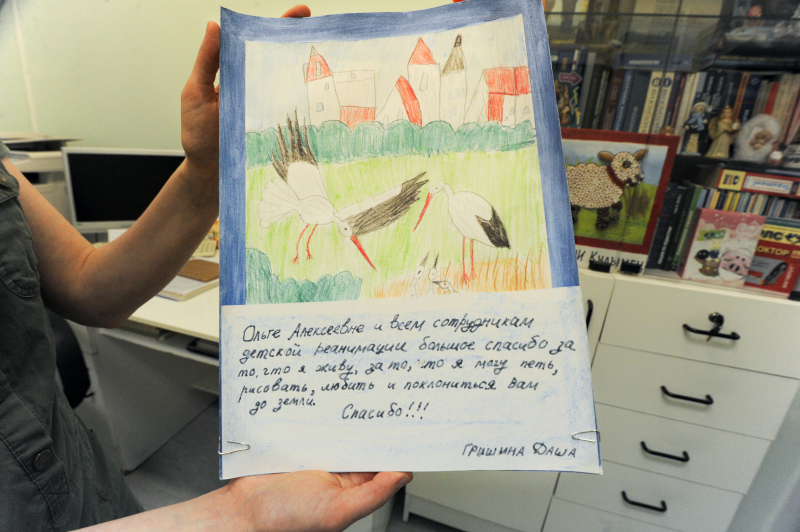 Ольге Алексеевне и всем сотрудникам
детской реанимации большое спасибо за
то, что я живу, за то, что я могу петь,
рисовать, любить и поклониться Вам
до земли.
Спасибо!!!
Гришина Даша
ДОКТОР